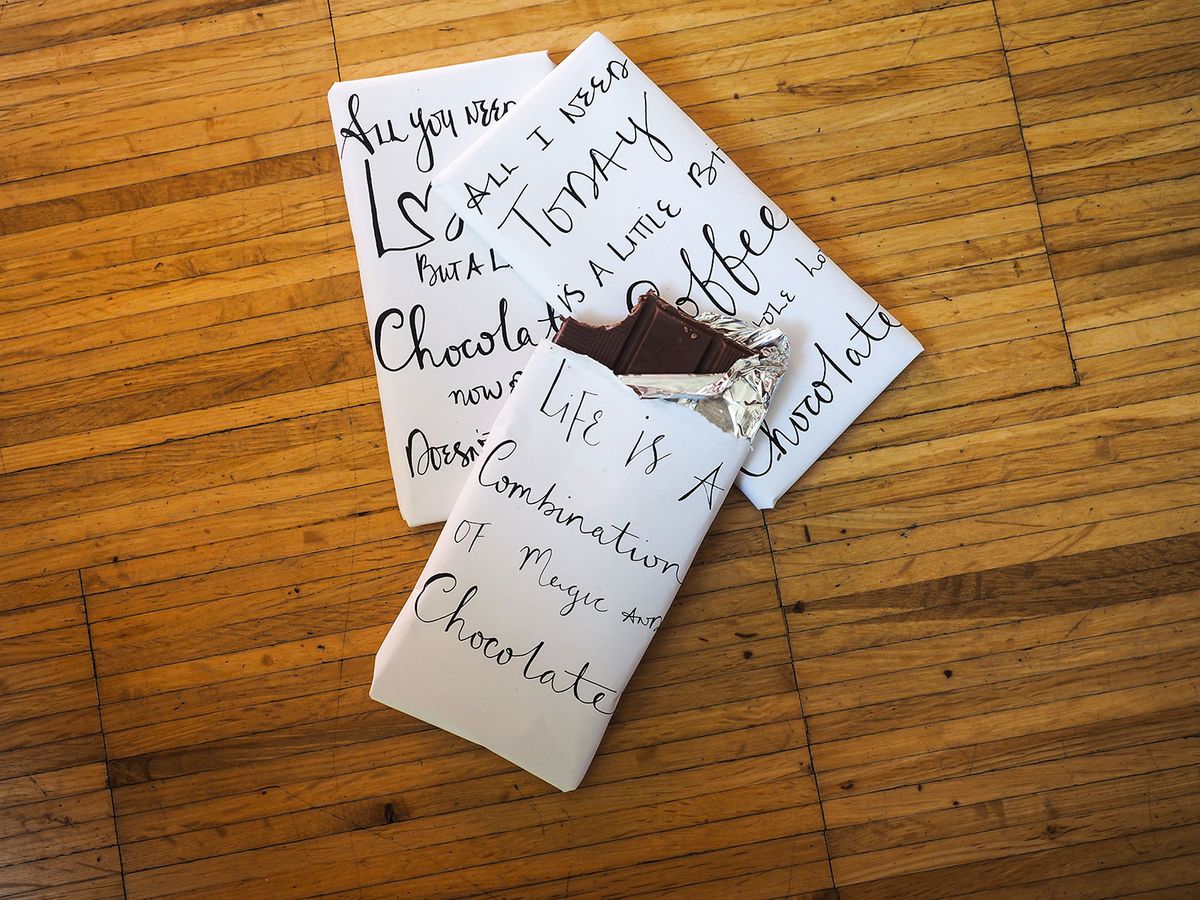 ALL YOU NEED
BUT A L
Chocolat
NOW
DOESN
ALL I NEED
TODAY
IS A LITTLE BIT
Coffee
OLE LO
Chocolate
LIFE IS A
Combination
OF Magic AND
Chocolate